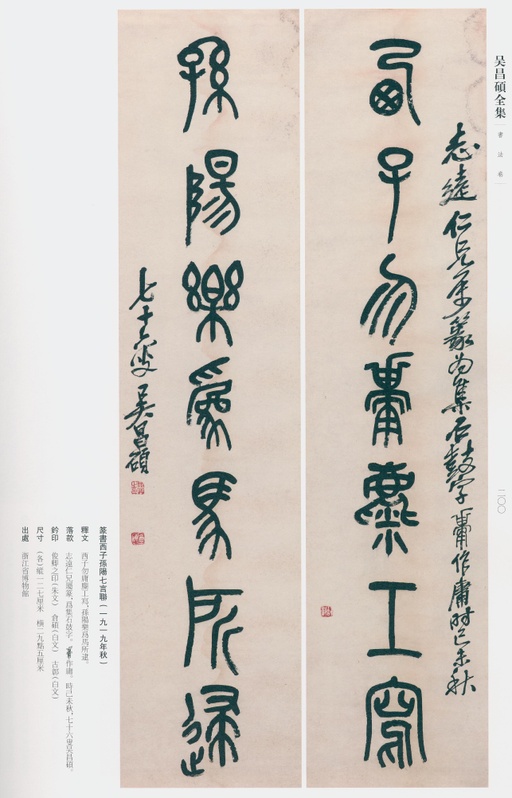 吴昌碩全集
書法卷
二〇〇
志遠仁兄屬篆為集石鼓字 作庸時己未秋
西子勿庸麋工寫
孫陽樂爲馬所歸
七十六叟吳昌碩
篆書西子孫陽七言聯（一九一九年秋）
釋文 西子勿庸麋工寫，孫陽樂爲馬所歸。
落款 志遠仁兄屬篆，爲集石鼓字。 作庸。時己未秋，七十六叟吳昌碩。
鈐印 俊卿之印（朱文） 倉碩（白文） 古鄣（白文）
尺寸 （各）縱一二七厘米 橫二九點五厘米
出處 浙江省博物館